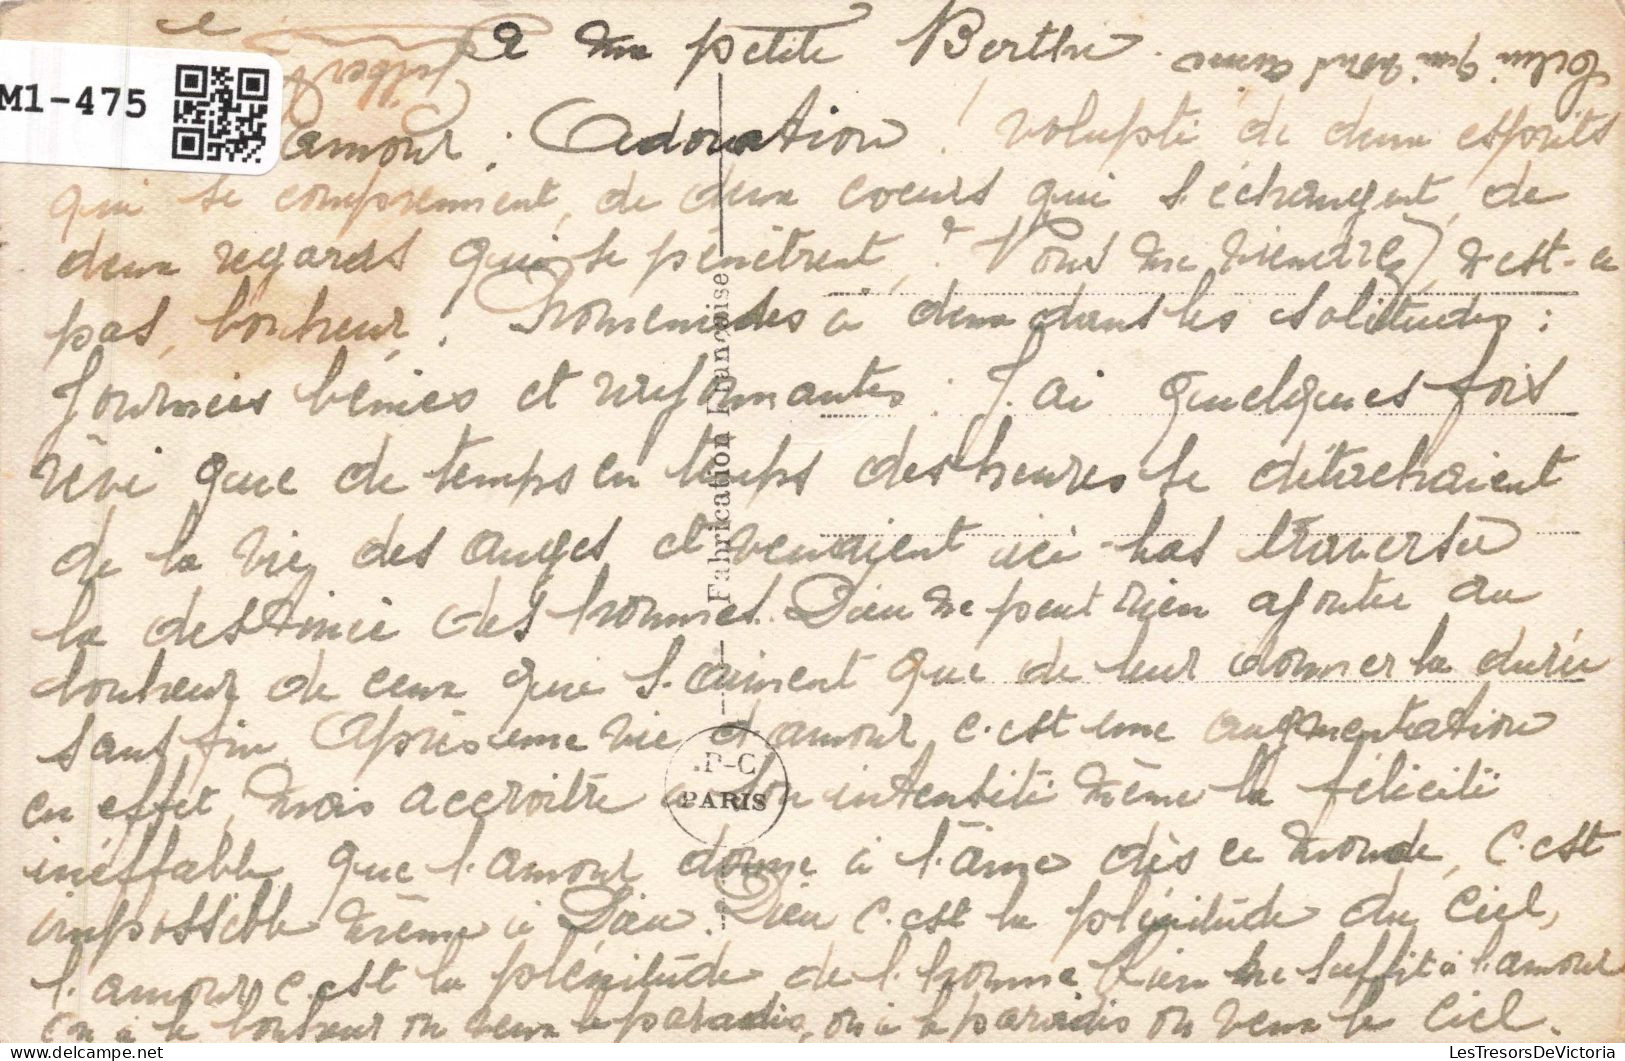 A ma petite Berthe.
M1-475
amour ; Adoration ! volupté de deux esprits
qui se comprennent, de deux coeurs qui s'échangent, de
deux regards qui se pénètrent, ? Vous me viendrez, n'est-ce
pas, bonheur ! Promenades à deux dans les solitudes ;
Journées bénies et rayonnantes ; J'ai quelques fois
rêvé que de temps en temps des heures se détachaient
de la vie des anges et venaient ici-bas traverser
la destinée des hommes. Dieu ne peut rien ajouter au
bonheur de ceux qui s'aiment que de leur donner la durée
sans fin. Après une vie d'amour, c'est une augmentation
en effet, mais accroître en son intensité même la félicité
ineffable que l'amour donne à l'âme dès ce monde, c'est
impossible même à Dieu. Dieu c'est la plénitude du ciel,
l'amour c'est la plénitude de l'homme. Rien ne suffit à l'amour
On a le bonheur on veux le paradis, on a le paradis on veux le ciel.
Fabrication Française
P-C
PARIS
LesTresorsDeVictoria